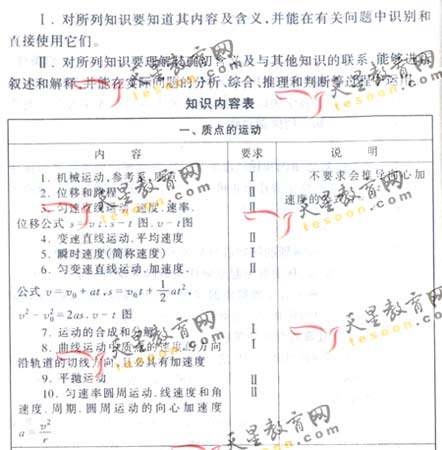 Ⅰ. 对所列知识要知道其内容及含义,并能在有关问题中识别和
直接使用它们。
Ⅱ. 对所列知识要理解其确切含义及与其他知识的联系,能够进行
叙述和解释,并能在实际问题的分析、综合、推理和判断等过程中运用
知识内容表
一、质点的运动
内 容 要求 说 明
1. 机械运动,参考系,质点 Ⅰ 不要求会推导向心加
2. 位移和路程 Ⅱ 速度的公式
3. 匀速直线运动.速度.速率. Ⅱ
位移公式 s=vt.s-t 图.v-t图
4. 变速直线运动.平均速度 Ⅱ
5. 瞬时速度(简称速度) Ⅰ
6. 匀变速直线运动.加速度. Ⅱ
公式 v=v₀+at,s=v₀t+1/2at²,
v²-v₀²=2as.v-t 图
7. 运动的合成和分解 Ⅰ
8. 曲线运动中质点的速度的方向 Ⅰ
沿轨道的切线方向,且必具有加速度
9. 平抛运动 Ⅱ
10. 匀速率圆周运动.线速度和角 Ⅱ
速度.周期.圆周运动的向心加速度
a=v²/r
天星教育网
tesoon.com
天星教育网
tesoon.com
天星教育网
tesoon.com
天星教育网
tesoon.com
天星教育网
tesoon.com
天星教育网